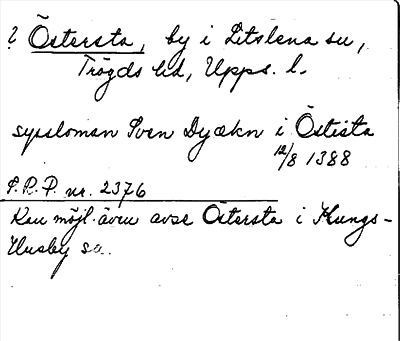 ? Östersta, by i Litslena sn,
Trögds hd, Upps. l.
sysloman Sven Dyækn i Östista
12/8 1388
S.R.P. nr. 2376
Kan möjl. även avse Östersta i Kungs-
Husby sn.